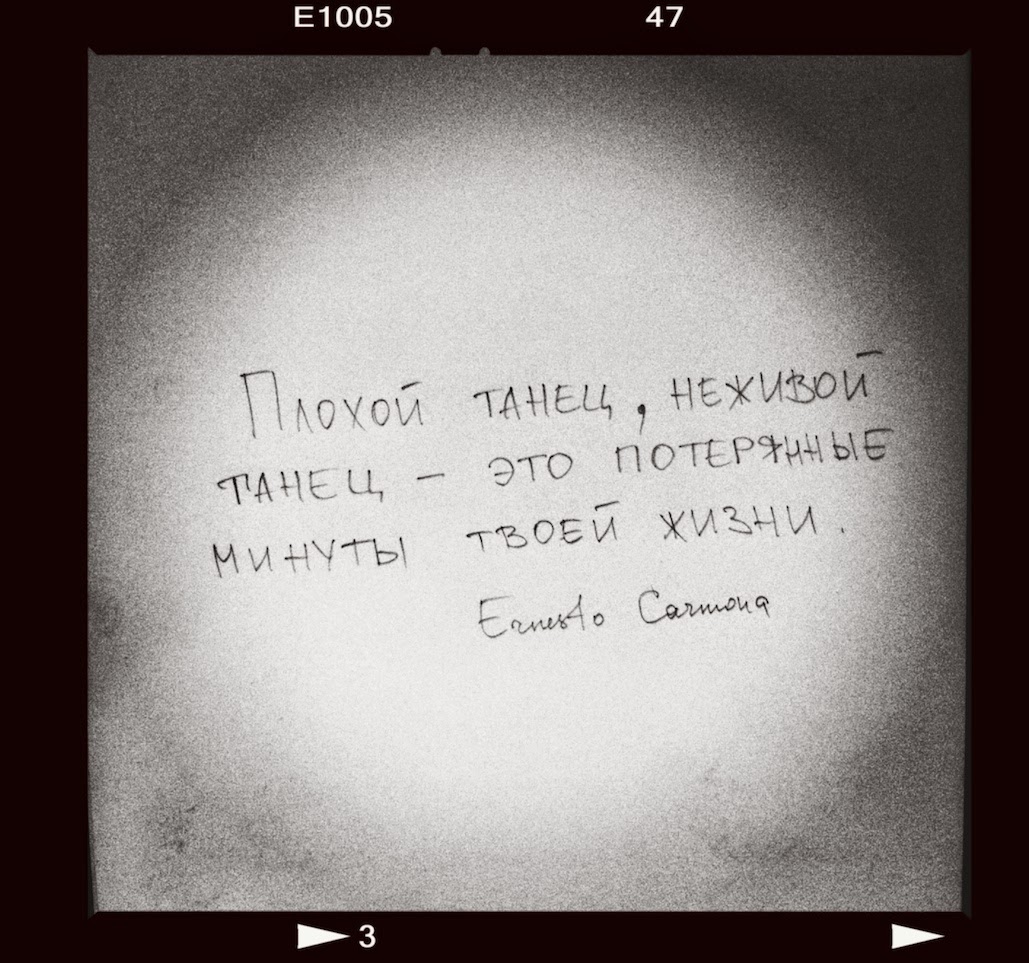 E1005 47
Плохой танец, неживой
танец – это потерянные
минуты твоей жизни.
Ernesto Carmona
3